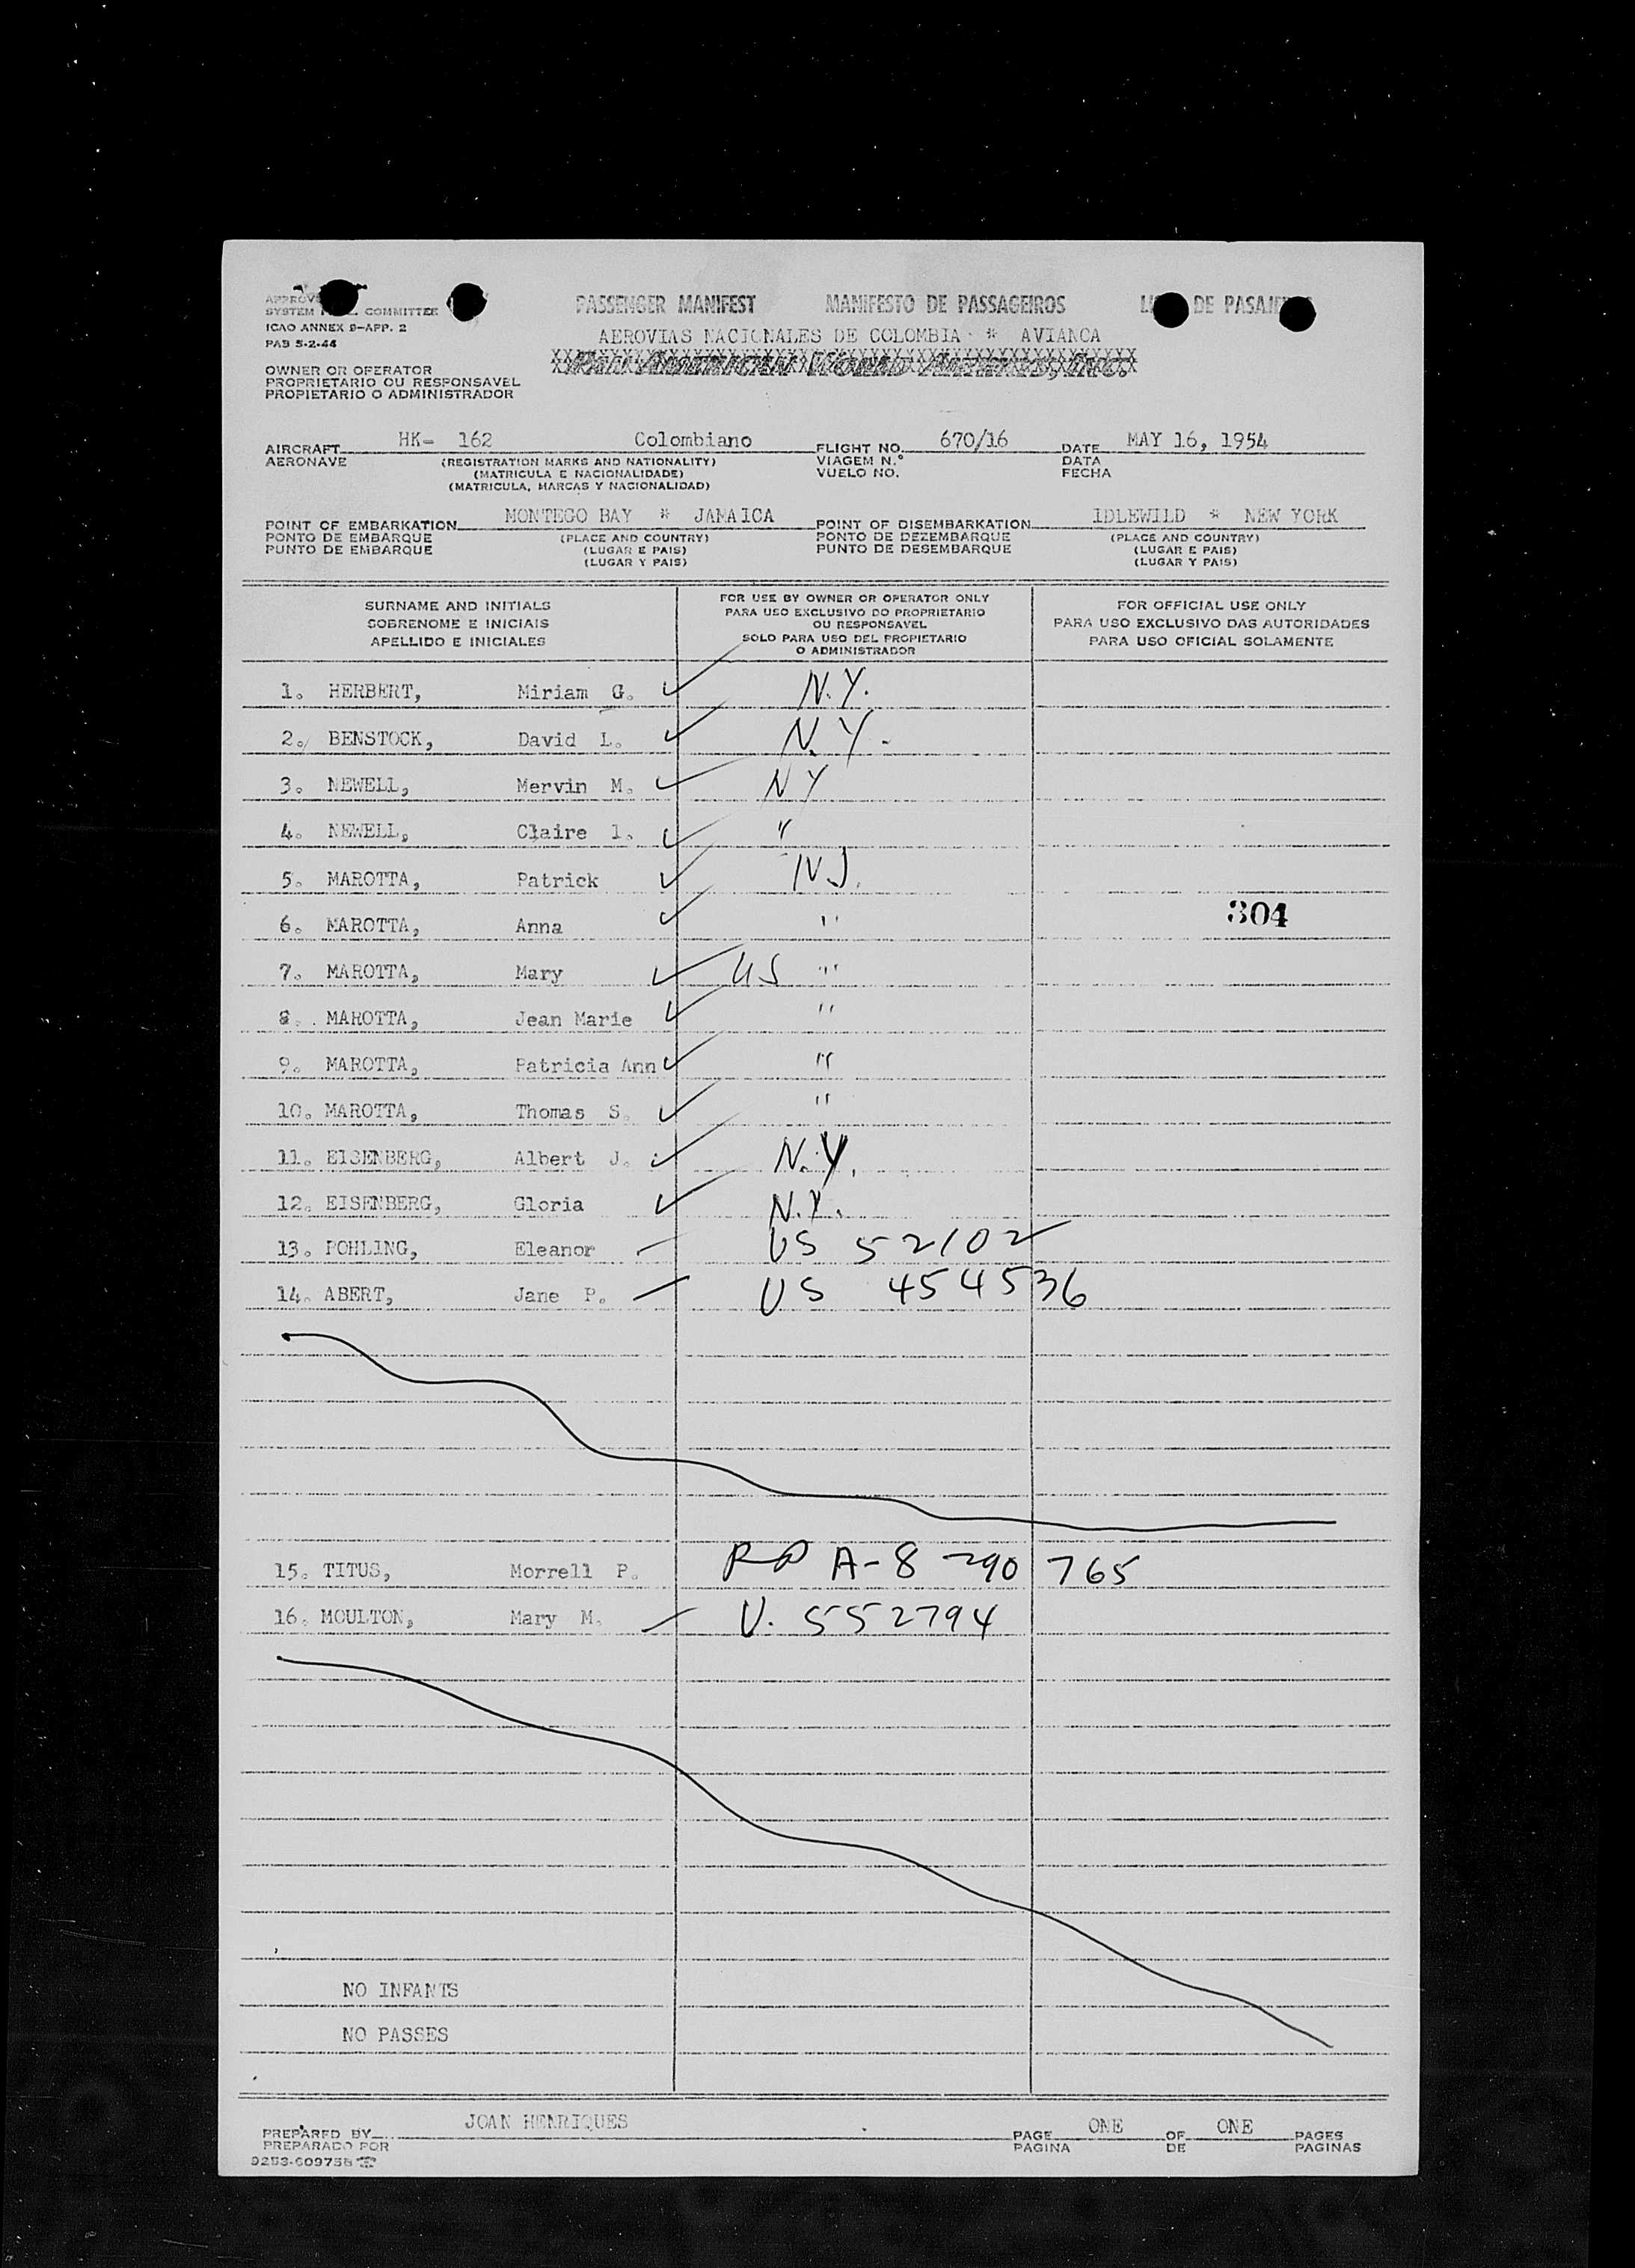 PASSENGER MANIFEST MANIFESTO DE PASSAGEIROS DE
SYSTEM COMMITTEE
ICAO ANNEX 9-APP. 2
PAB 5-2-44
AEROVIAS NACIONALES DE COLOMBIA * AVIANCA
PAN AMERICAN WORLD AIRWAYS, INC.
OWNER OR OPERATOR
PROPRIETARIO OU RESPONSAVEL
PROPIETARIO O ADMINISTRADOR
AIRCRAFT HK- 162 Colombiano FLIGHT NO. 670/16 DATE MAY 16, 1954
AERONAVE (REGISTRATION MARKS AND NATIONALITY) VIAGEM N.° DATA
(MATRICULA E NACIONALIDADE) VUELO NO. FECHA
(MATRICULA, MARCAS Y NACIONALIDAD)
POINT OF EMBARKATION MONTEGO BAY * JAMAICA POINT OF DISEMBARKATION IDLEWILD * NEW YORK
PONTO DE EMBARQUE (PLACE AND COUNTRY) PONTO DE DEZEMBARQUE (PLACE AND COUNTRY)
PUNTO DE EMBARQUE (LUGAR E PAIS) PUNTO DE DESEMBARQUE (LUGAR E PAIS)
(LUGAR Y PAIS) (LUGAR Y PAIS)
SURNAME AND INITIALS
SOBRENOME E INICIAIS
APELLIDO E INICIALES
FOR USE BY OWNER OR OPERATOR ONLY
PARA USO EXCLUSIVO DO PROPRIETARIO
OU RESPONSAVEL
SOLO PARA USO DEL PROPIETARIO
O ADMINISTRADOR
FOR OFFICIAL USE ONLY
PARA USO EXCLUSIVO DAS AUTORIDADES
PARA USO OFICIAL SOLAMENTE
1. HERBERT, Miriam G. N.Y.
2. BENSTOCK, David L. N.Y.
3. NEWELL, Mervin M. NY
4. NEWELL, Claire l. "
5. MAROTTA, Patrick N.J.
6. MAROTTA, Anna "
304
7. MAROTTA, Mary US "
8. MAROTTA, Jean Marie "
9. MAROTTA, Patricia Ann "
10. MAROTTA, Thomas S. "
11. EISENBERG, Albert J. N.Y.
12. EISENBERG, Gloria N.Y.
13. POHLING, Eleanor US 52102
14. ABERT, Jane P. US 454536
15. TITUS, Morrell P. RP A-8 290 765
16. MOULTON, Mary M. V. 552794
NO INFANTS
NO PASSES
PREPARED BY JOAN HENRIQUES PAGE ONE OF ONE PAGES
PREPARADO POR PAGINA DE PAGINAS